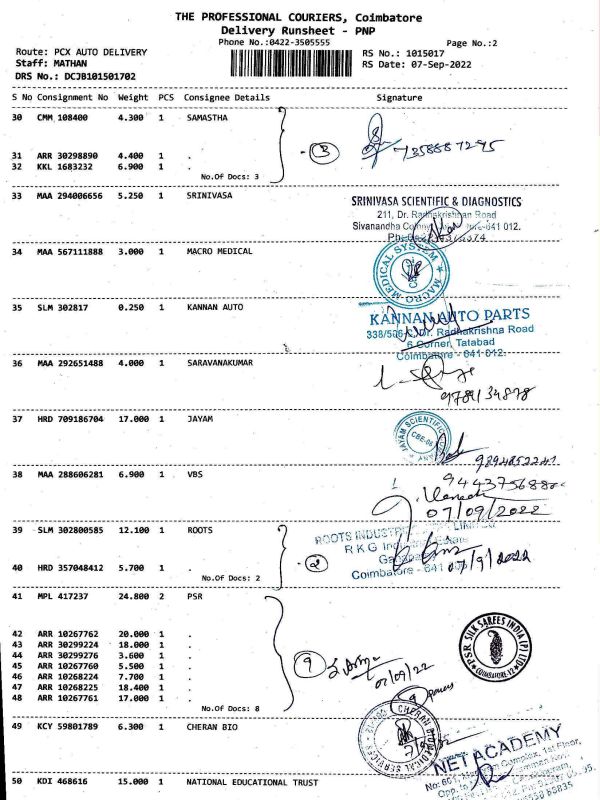 THE PROFESSIONAL COURIERS, Coimbatore
Delivery Runsheet - PNP
Phone No.:0422-3505555
Page No.:2
Route: PCX AUTO DELIVERY
RS No.: 1015017
Staff: MATHAN
RS Date: 07-Sep-2022
DRS No.: DCJB101501702
S No Consignment No Weight PCS Consignee Details Signature
30 CMM 108400 4.300 1 SAMASTHA
31 ARR 30298890 4.400 1 .
3
7358887295
32 KKL 1683232 6.900 1 .
No.Of Docs: 3
33 MAA 294006656 5.250 1 SRINIVASA
SRINIVASA SCIENTIFIC & DIAGNOSTICS
211, Dr. Radhakrishnan Road
Sivanandha
641 012.
34 MAA 567111888 3.000 1 MACRO MEDICAL
MACRO MEDICAL SYSTEM
35 SLM 302817 0.250 1 KANNAN AUTO
KANNAN AUTO PARTS
Dr. Radhakrishna Road
6 Corner, Tatabad
Coimbatore - 641 012.
36 MAA 292651488 4.000 1 SARAVANAKUMAR
9789134878
37 HRD 709186704 17.000 1 JAYAM
JAYAM SCIENTIFIC
9894852241
38 MAA 288606281 6.900 1 VBS
07/09/2022
39 SLM 302800585 12.100 1 ROOTS
ROOTS INDUSTRIES LIMITED
R K G Industrial Estate
2
Coimbatore - 641
07/9/2022
40 HRD 357048412 5.700 1 .
No.Of Docs: 2
41 MPL 417237 24.800 2 PSR
PSR SILK SAREES INDIA (P) LTD
COIMBATORE-12
42 ARR 10267762 20.000 1 .
43 ARR 30299224 18.000 1 .
44 ARR 30299276 3.600 1 .
45 ARR 10267760 5.500 1 .
9
07/09/22
46 ARR 10268224 7.700 1 .
47 ARR 10268225 18.400 1 .
48 ARR 10267761 17.000 1 .
No.Of Docs: 8
9
49 KCY 59801789 6.300 1 CHERAN BIO
CHERAN BIOMEDICAL SERVICES
NET ACADEMY
Complex, 1st Floor,
50 KDI 468616 15.000 1 NATIONAL EDUCATIONAL TRUST